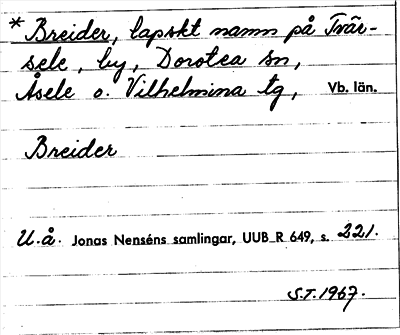 * Breider, lapskt namn på Tvär-
sele, by, Dorotea sn,
Åsele o. Vilhelmina tg, Vb. län.
Breider
U.å. Jonas Nenséns samlingar, UUB R 649, s. 221.
S.T. 1967.